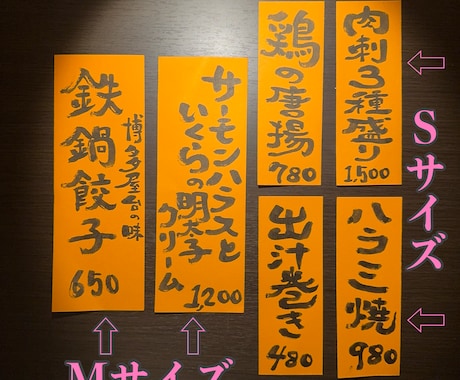 肉刺3種盛り
1,500
鶏の唐揚
780
サーモンハラスと
いくらの明太子
クリーム
1,200
博多屋台の味
鉄鍋餃子
650
ハラミ焼
980
出汁巻き
480
Sサイズ
Mサイズ